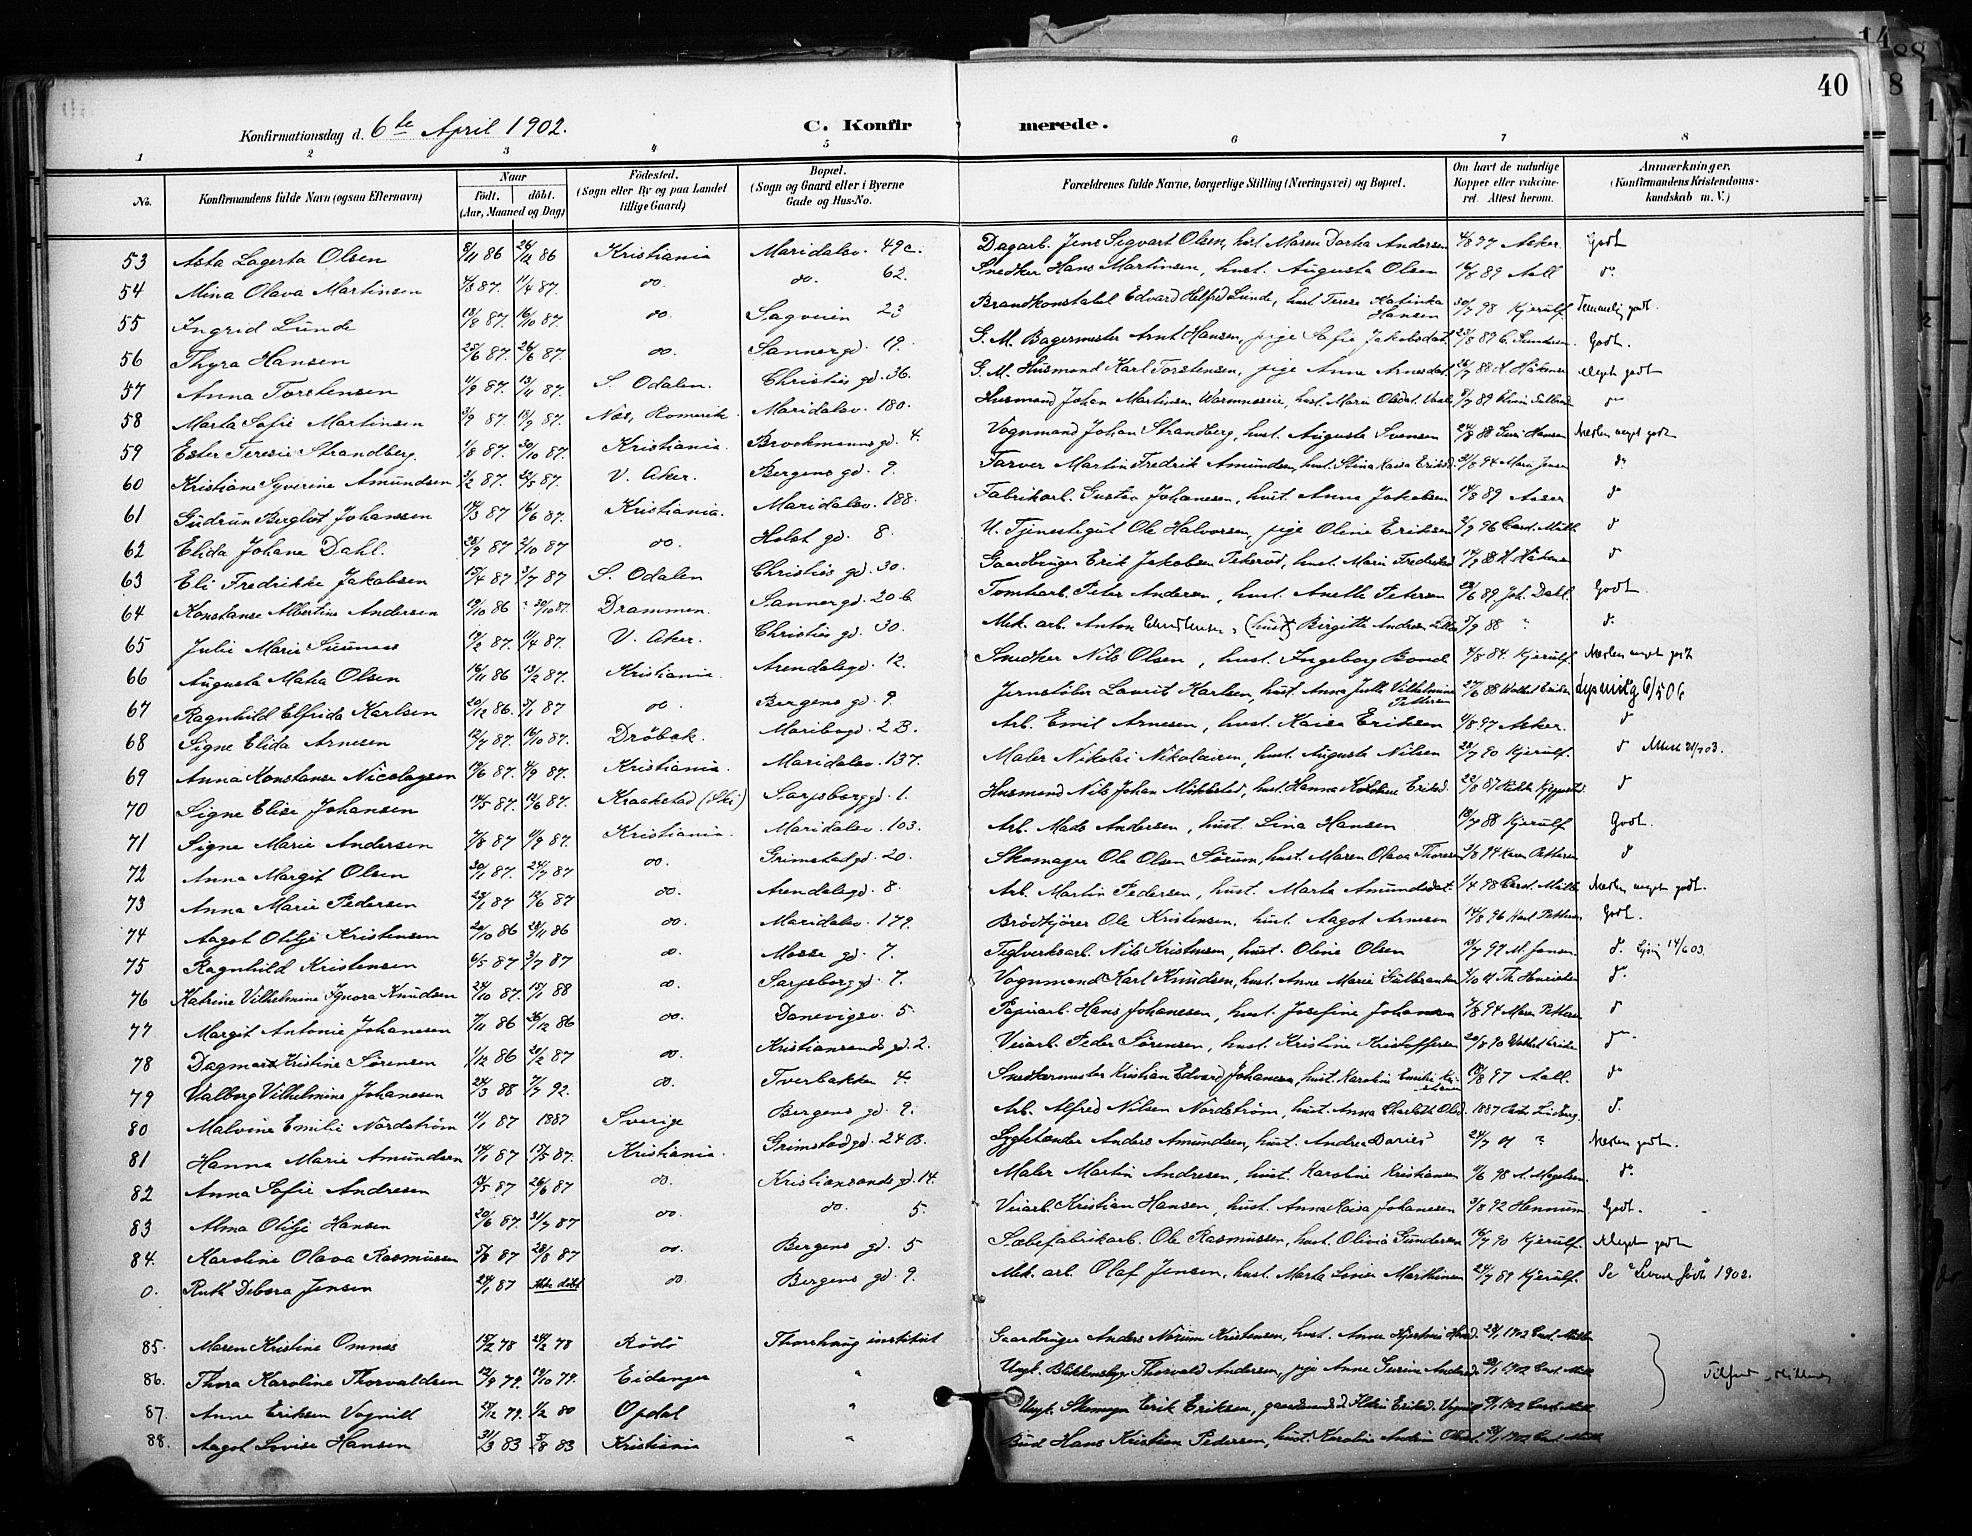 40
Konfirmationsdag d. 6te April 1902. C. Konfirmerede.
1 2 3 4 5 6 7 8
No. Konfirmandens fulde Navn (ogsaa Efternavn) Naar født. døbt. (Aar, Maaned og Dag) Fødested. (Sogn eller By og paa Landet tillige Gaard) Bopæl. (Sogn og Gaard eller i Byerne Gade og Hus-No. Forældrenes fulde Navne, borgerlige Stilling (Næringsvei) og Bopæl. Om havt de naturlige Kopper eller vakcineret. Attest herom. Anmærkninger. (Konfirmandens Kristendomskundskab m. V.)
53 Asta Lagerta Olsen 8/11 86 26/12 86 Kristiania Maridalsv. 49c. Dagarb. Jens Sigvart Olsen, hust. Maren Dorthea Andersen 4/8 97 Asker Godt
54 Mina Olava Martinsen 11/4 87. do. do. 62. Snedker Hans Martinsen, hust. Augusta Olsen 89 Aall do
55 Ingrid Lunde 13/8 87. 16/10 87. do. Sagveien 23 Brandkonstabel Edvard Helfred Lunde, hust. Terese Katinka Hansen 30/7 98 Kjerulf Temmelig godt.
56 Thyra Hansen 25/6 87. 26/6 87. do. Sannergd. 19. G. M. Bagermester Arnt Hansen, pige Sofie Jakobsdat. 23/8 89 Godt.
57 Anna Torstensen 1/9 87. 13/11 87. S. Odalen. Christies gd. 36. G. M. Husmand Karl Torstensen, pige Anne Arnesdat. 88 H. Håkens Meget godt
58 Marta Sofie Martinsen 3/9 87. 18/9 87. Nes, Romerik. Maridalsv. 180. Husmand Johan Martinsen, hust. Marie Olsdat. 89 do
59 Ester Teresie Strandberg. 1/8 87. 30/10 87. Kristiania. Brochmannsgd. 4. Vognmand Johan Strandberg, hust. Augusta Svensen 24/8 88 Hansen Næsten meget godt
60 Kristiane Syverine Amundsen 3/2 87. 22/5 87. V. Aker. Bergens gd. 9. Farver Martin Fredrik Amundsen, hust. Stina Kaisa Eriksd. 31/8 94 Jensen do
61 Gudrun Bergliot Johansen 17/3 87 16/6 87. Kristiania. Maridalsv. 188. Fabrikarb. Gustav Johanesen, hust. Anna Jakobsen 14/8 89 do
62 Elida Johane Dahl. 25/9 87. 2/10 87 do. Holst gd. 8. U. Tjenestegut Ole Halvorsen, pige Oline Eriksen 2/9 96 do
63 Eli Fredrikke Jakobsen 15/4 87 3/7 87 S. Odalen Christies gd. 30. Gaardbruger Erik Jakobsen, hust. Marie Fredriksd. 88 H. Håkens do
64 Konstanse Albertine Andersen 19/10 86 30/10 87. Drammen. Sannergd. 20 b Tomtarb. Peter Andersen, hust. Anette Petersen 89. Joh. Dahl. Godt.
65 Julie Marie 17/2 87. 11/4 87. V. Aker. Christies gd. 30. Mek. arb. Anton, (hust) Birgitte Andrea 5/9 88 " do.
66 Augusta Matea Olsen 16/11 86 13/2 87. Kristiania. Arendalsgd. 12. Snedker Nils Olsen, hust. Ingeborg 4/8 84. Kjerulf Næsten meget godt
67 Ragnhild Elfrida Karlsen 20/12 86. 3/1 87 do. Bergens gd. 9. Jernstøber Laurit Karlsen, hust. Anna Julle Vilhelmine Pettersen 27/6 88 6/5 06
68 Signe Elida Arnesen 12/7 87. 16/10 87. Drøbak. Maribogd. 2 B. Arb. Emil Arnesen, hust. Kaisa Eriksen 4/8 97 Asker do
69 Anna Konstanse Nicolaysen 14/6 87. 4/9 87. Kristiania. Maridalsv. 137. Maler Nikolai Nikolaisen, hust. Augusta Nilsen 23/7 90 Kjerulf. do
70 Signe Elise Johansen 14/5 87. 12/6 87. Kraakstad (Ski) Sarpsborggd. 1. Husmand Nils Johan, hust. Hanna Eriksd. 22/8 87 do
71 Signe Marie Andersen 7/8 87 11/9 87. Kristiania. Maridalsv. 103. Arb. Mads Andersen, hust. Lina Hansen 18/7 88 Kjerulf Godt.
72 Anna Margit Olsen 30/1 87. 24/7 87 do. Grimstadgd. 20. Skomager Ole Olsen Sørum, hust. Maren Olava Thoresen 94 Karen Pettersen do
73 Anna Marie Pedersen 23/1 87 12/6 87 do. Arendalsgd. 8. Arb. Martin Pedersen, hust. Marta Amundsdat. 1/4 98 Næsten meget godt.
74 Aagot Otilje Kristensen 20/10 86 29/11 86 do. Maridalsv. 179. Brødkjører Ole Kristensen, hust. Aagot Arnesen 14/8 96 Godt.
75 Ragnhild Kristensen 6/5 87 3/7 87 do. Mosse gd. 7. Teglverksarb. Nils Kristensen, hust. Oline Olsen 13/7 97 Jansen do. 14/6 03.
76 Katrine Vilhelmine Ignora Knudsen 24/10 87. 15/1 88 do. Sarpsborggd. 7. Vognmand Karl Knudsen, hust. Anne Marie Gulbrandsen Th. Henriksen do.
77 Margit Antonie Johanesen 7/11 86 26/12 86 do. Danevigsv. 5. Papirarb. Hans Johanesen, hust. Josefine Johansen 7/8 94 do
78 Dagmar Kristine Sørensen 1/12 86 21/2 87 do. Kristiansands gd. 2. Veiarb. Peder Sørensen, hust. Kristine Kristoffersen 20/8 90 do
79 Valborg Vilhelmine Johanesen 24/3 88 7/7 92. do. Tverbakken 4. Snedkermester Kristian Edvard Johanesen, hust. Karoline Emilie 18/8 97 Aall. do
80 Malvine Emilie Nordstrøm 11/1 87 1887 Sverige Bergens gd. 9. Arb. Alfred Nilsen Nordstrøm, hust. Anna Charlotte Olsd. 1887 do.
81 Hanna Marie Amundsen 14/1 87 15/5 87. Kristiania. Grimstadgd. 24 B. Lygtetænder Anders Amundsen, hust. Andrea 24/7 01 " Næsten godt.
82 Anna Sofie Andresen 14/5 87 26/6 87 do. Kristiansands gd. 14. Maler Martin Andresen, hust. Karoline Kristiansen 98 A. Magelsen do.
83 Alma Otilje Hansen 20/6 87. 31/7 87 do. do. 5. Veiarb. Kristian Hansen, hust. Anna Kaisa Johanesen 3/8 92 Hennum Godt.
84. Karoline Olava Rasmussen 5/8 87 28/8 87 do. Bergens gd. 5 Sæbefabrikarb. Ole Rasmussen, hust. Olivia Gundersen 16/7 90 Kjerulf. Meget godt
0. Ruth Debora Jensen 24/1 87 Ikke døbt do. Bergens gd. 9. Mek. arb. Olaf Jensen, hust. Marta Lovise Martinsen 24/7 89 Kjerulf. Se "Levende fødte" 1902.
85. Maren Kristine Omnes 15/2 78 24/2 78 Rødø Thorshaug institut Gaardbruger Anders Kristensen, hust. Anne 1902
86. Thora Karoline Thorvaldsen 12/9 79. 19/10 79. Eidanger " Ungk. Thorvald Andersen, pige Anne Gurine Andersd. 1902
87. Anne Eriksen Vognill 27/12 79. 1/2 80 Opdal " Ungk. Erik Eriksen, 1902
88. Aagot Lovise Hansen 31/3 83 5/8 83 Kristiania " Bud Hans Kristian Pedersen, hust. Karoline 1902